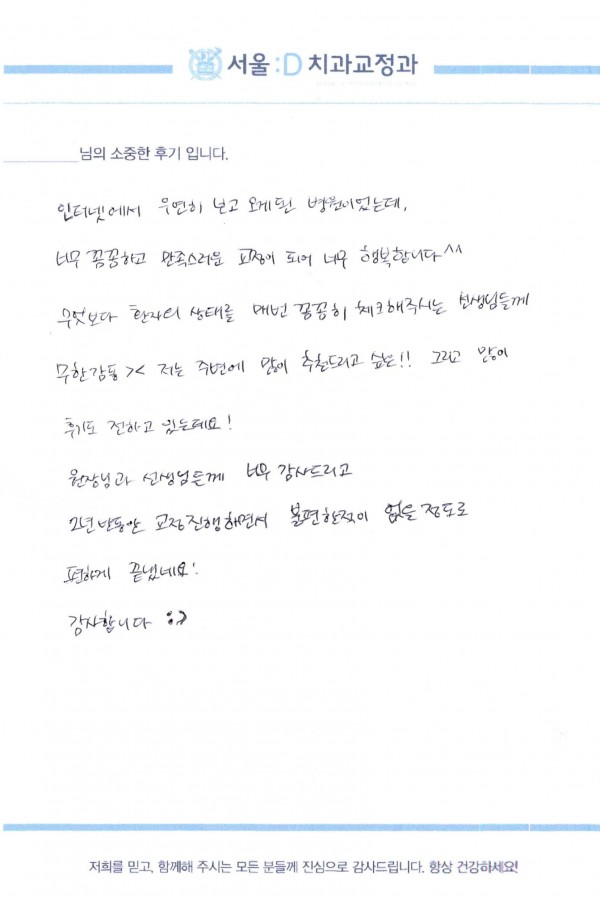 서울:D 치과교정과
님의 소중한 후기 입니다.
인터넷에서 우연히 보고 오게된 병원이었는데,
너무 꼼꼼하고 만족스러운 교정이 되어 너무 행복합니다^^
무엇보다 환자의 상태를 매번 꼼꼼히 체크해주시는 선생님들께
무한감동>< 저는 주변에 많이 추천드리고 싶은!! 그리고 많이
후기도 전하고 있는데요!
원장님과 선생님들께 너무 감사드리고
2년반동안 교정진행하면서 불편한적이 없을 정도로
편하게 끝냈네요!
감사합니다 :)
저희를 믿고, 함께해 주시는 모든 분들께 진심으로 감사드립니다. 항상 건강하세요!